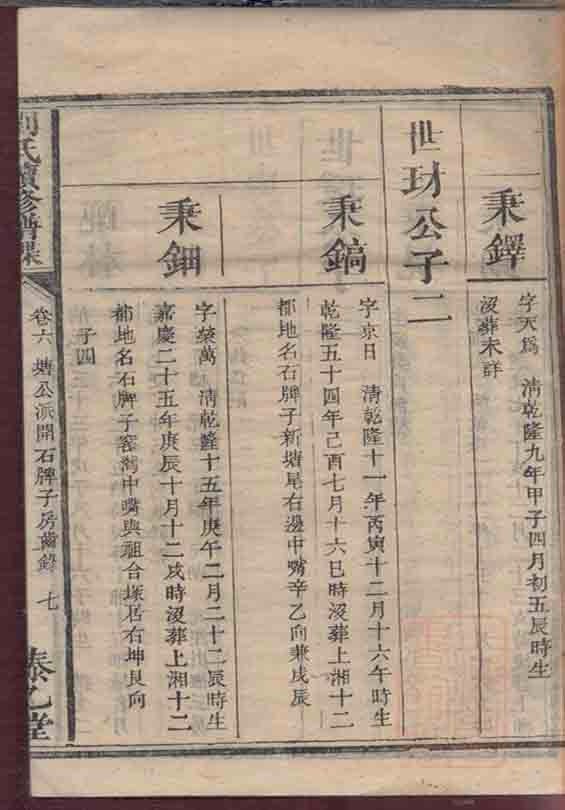 秉鐸
字天爲 清乾隆九年甲子四月初五辰時生
沒葬未詳
世玏公子二
秉鎬
字京日 清乾隆十一年丙寅十二月十六午時生
乾隆五十四年己酉七月十六巳時沒葬上湘十二
都地名石牌子新塘尾右邊中嘴辛乙向兼戌辰
秉鈿
字榮萬 清乾隆十五年庚午二月二十二辰時生
嘉慶二十五年庚辰十月十二戌時沒葬上湘十二
都地名石牌子窑灣中嘴與祖合塚居右坤艮向
子四
氏續修譜
卷六 公派開石牌子房齒錄 七
泰乙堂